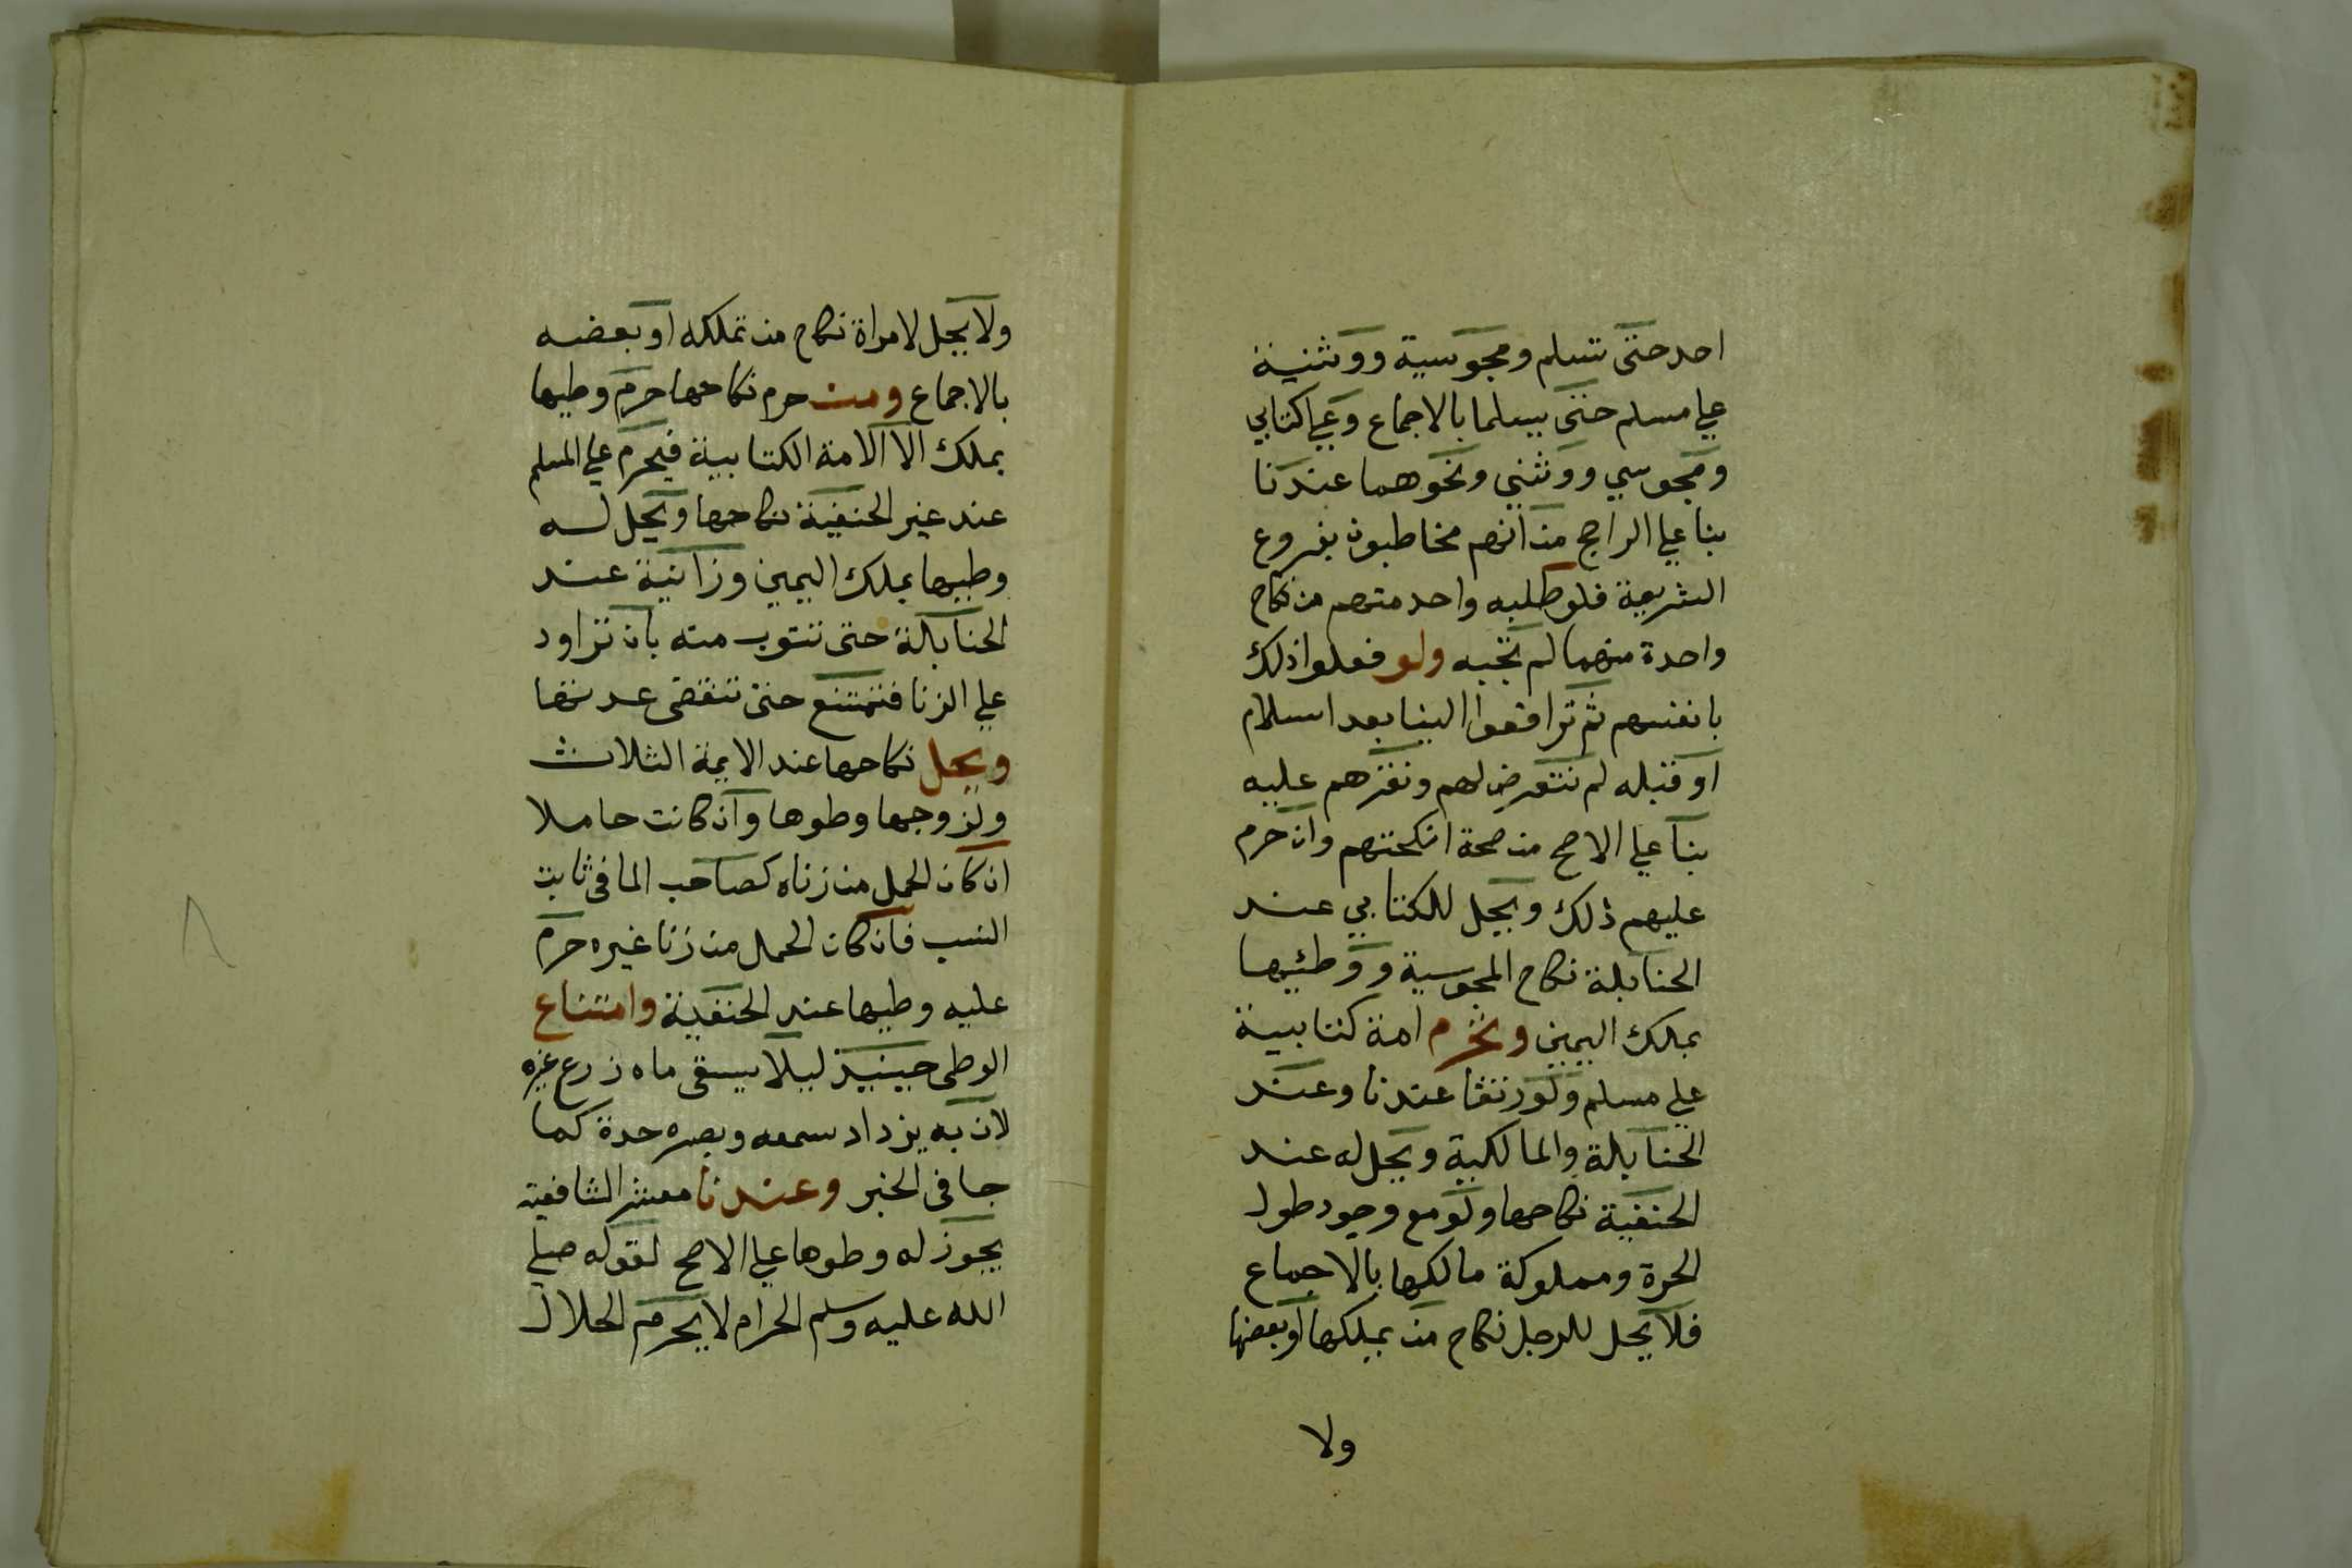 احد حتى تسلم ومجوسية ووثنية
علي مسلم حتى يسلما بالاجماع وعلي كتابي
ومجوسي ووثني ونحوهما عندنا
بنا علي الراجح من انهم مخاطبون بفروع
الشريعة فلو طلبه واحد منهم من نكاح
واحدة منهما لم نجبه ولو فعلوا ذلك
بانفسهم ثم ترافعوا الينا بعد اسلام
او قبله لم نتعرض لهم ونقرهم عليه
بنا علي الاصح من صحة انكحتهم وان حرم
عليهم ذلك ويحل للكتابي عند
الحنابلة نكاح المجوسية ووطئيها
بملك اليمين وتحرم امة كتابية
علي مسلم ولو زنقا عندنا وعند
الحنابلة والمالكية ويحل له عند
الحنفية نكاحها ولو مع وجود طول
الحرة ومملوكة مالكها بالاجماع
فلا يحل للرجل نكاح من يملكها او بعضها
ولا
ولا يحل لامراة نكاح من تملكه او بعضه
بالاجماع ومن حرم نكاحها حرم وطيها
بملك الا الامة الكتابية فيحرم علي المسلم
عند غير الحنفية نكاحها ويحل له
وطيها بملك اليمين وزانية عند
الحنابلة حتى تتوب منه بان تراود
علي الزنا فتمتنع حتى تنقضى عدتها
ويحل نكاحها عند الايمة الثلاث
ولزوجها وطوها وان كانت حاملا
ان كان الحمل من زناه كصاحب الما فى ثابت
النسب فان كان الحمل من زنا غيره حرم
عليه وطيها عند الحنفية وامتناع
الوطى حينيذ ليلا يسقى ماه زرع غيره
لان به يزداد سمعه وبصره حدة كما
جا فى الخبر وعندنا معشر الشافعية
يجوز له وطوها علي الاصح لقوله صلي
الله عليه وسلم الحرام لا يحرم الحلال